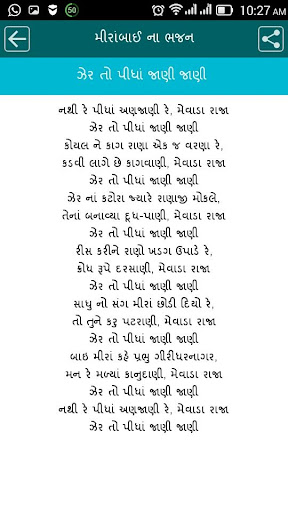 50
10:27 AM
મીરાંબાઈ ના ભજન
ઝેર તો પીધાં જાણી જાણી
નથી રે પીધાં અણજાણી રે, મેવાડા રાજા
ઝેર તો પીધાં જાણી જાણી
કોયલ ને કાગ રાણા એક જ વરણા રે,
કડવી લાગે છે કાગવાણી, મેવાડા રાજા
ઝેર તો પીધાં જાણી જાણી
ઝેર નાં કટોરા જ્યારે રાણાજી મોકલે,
તેનાં બનાવ્યા દૂધ-પાણી, મેવાડા રાજા
ઝેર તો પીધાં જાણી જાણી
રીસ કરીને રાણો ખડગ ઉપાડે રે,
ક્રોધ રૂપે દરસાણી, મેવાડા રાજા
ઝેર તો પીધાં જાણી જાણી
સાધુ નો સંગ મીરાં છોડી દિયો રે,
તો તુને કરુ પટરાણી, મેવાડા રાજા
ઝેર તો પીધાં જાણી જાણી
બાઇ મીરાં કહે પ્રભુ ગીરીધરનાગર,
મન રે મળ્યાં કાનુદાણી, મેવાડા રાજા
ઝેર તો પીધાં જાણી જાણી
નથી રે પીધાં અણજાણી રે, મેવાડા રાજા
ઝેર તો પીધાં જાણી જાણી